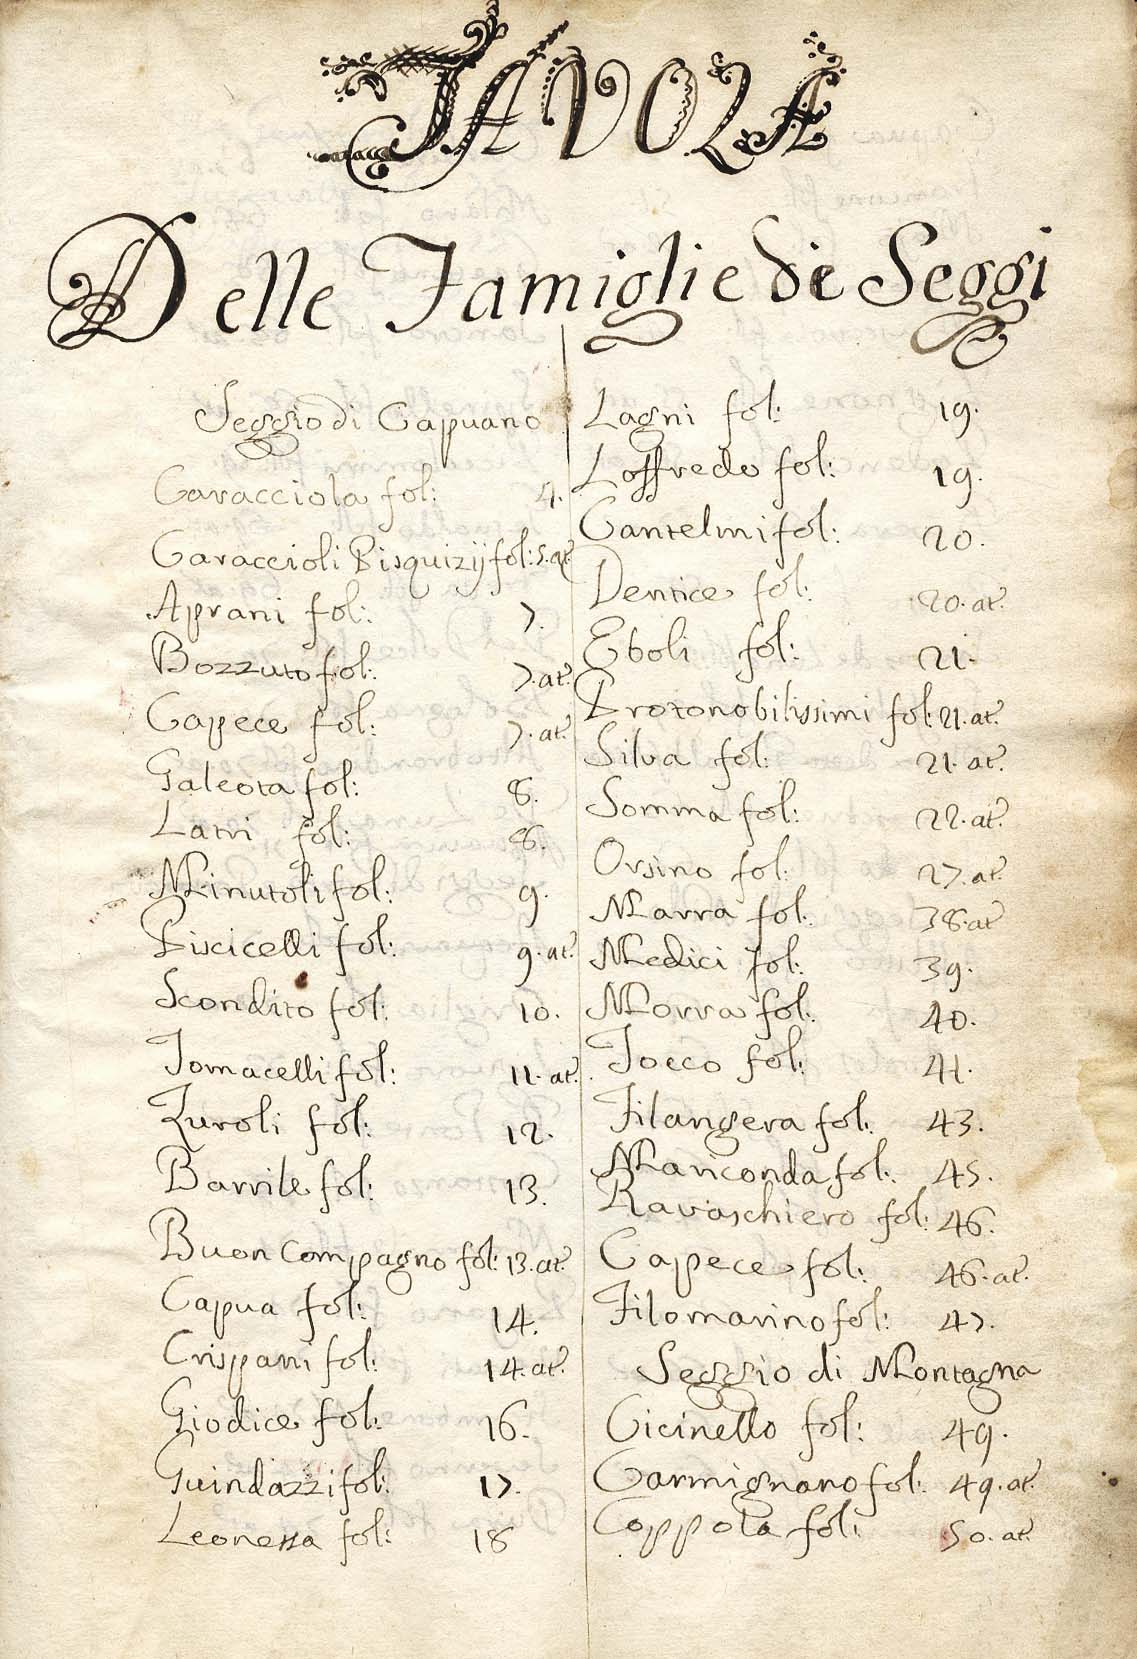 TAVOLA
Delle Famiglie di Seggi
Seggio di Capuano
Caracciola fol: 4.
Caraccioli Pisquizij fol: 5. at.
Aprani fol: 7.
Bozzuto fol: 7. at.
Capece fol: 7. at.
Galeota fol: 8.
Latri fol: 8.
Minutoli fol: 9.
Piscicelli fol: 9. at.
Scondito fol: 10.
Tomacelli fol: 11. at.
Zuroli fol: 12.
Barrile fol: 13.
Buon compagno fol: 13. at.
Capua fol: 14.
Crispani fol: 14. at.
Giodice fol: 16.
Guindazzi fol: 17.
Leonessa fol: 18
Lagni fol: 19.
Loffredo fol: 19.
Cantelmi fol: 20.
Dentice fol: 20. at.
Eboli fol: 21.
Protonobilissimi fol: 21. at.
Silva fol: 21. at.
Somma fol: 22. at.
Orsino fol: 27. at.
Marra fol: 38. at
Medici fol: 39.
Morra fol: 40.
Tocco fol: 41.
Filangera fol: 43.
Manconda fol: 45.
Ravaschiero fol: 46.
Capece fol: 46. at.
Filomarino fol: 47.
Seggio di Montagna
Cicinello fol: 49.
Carmignano fol: 49. at.
Coppola fol: 50. at.